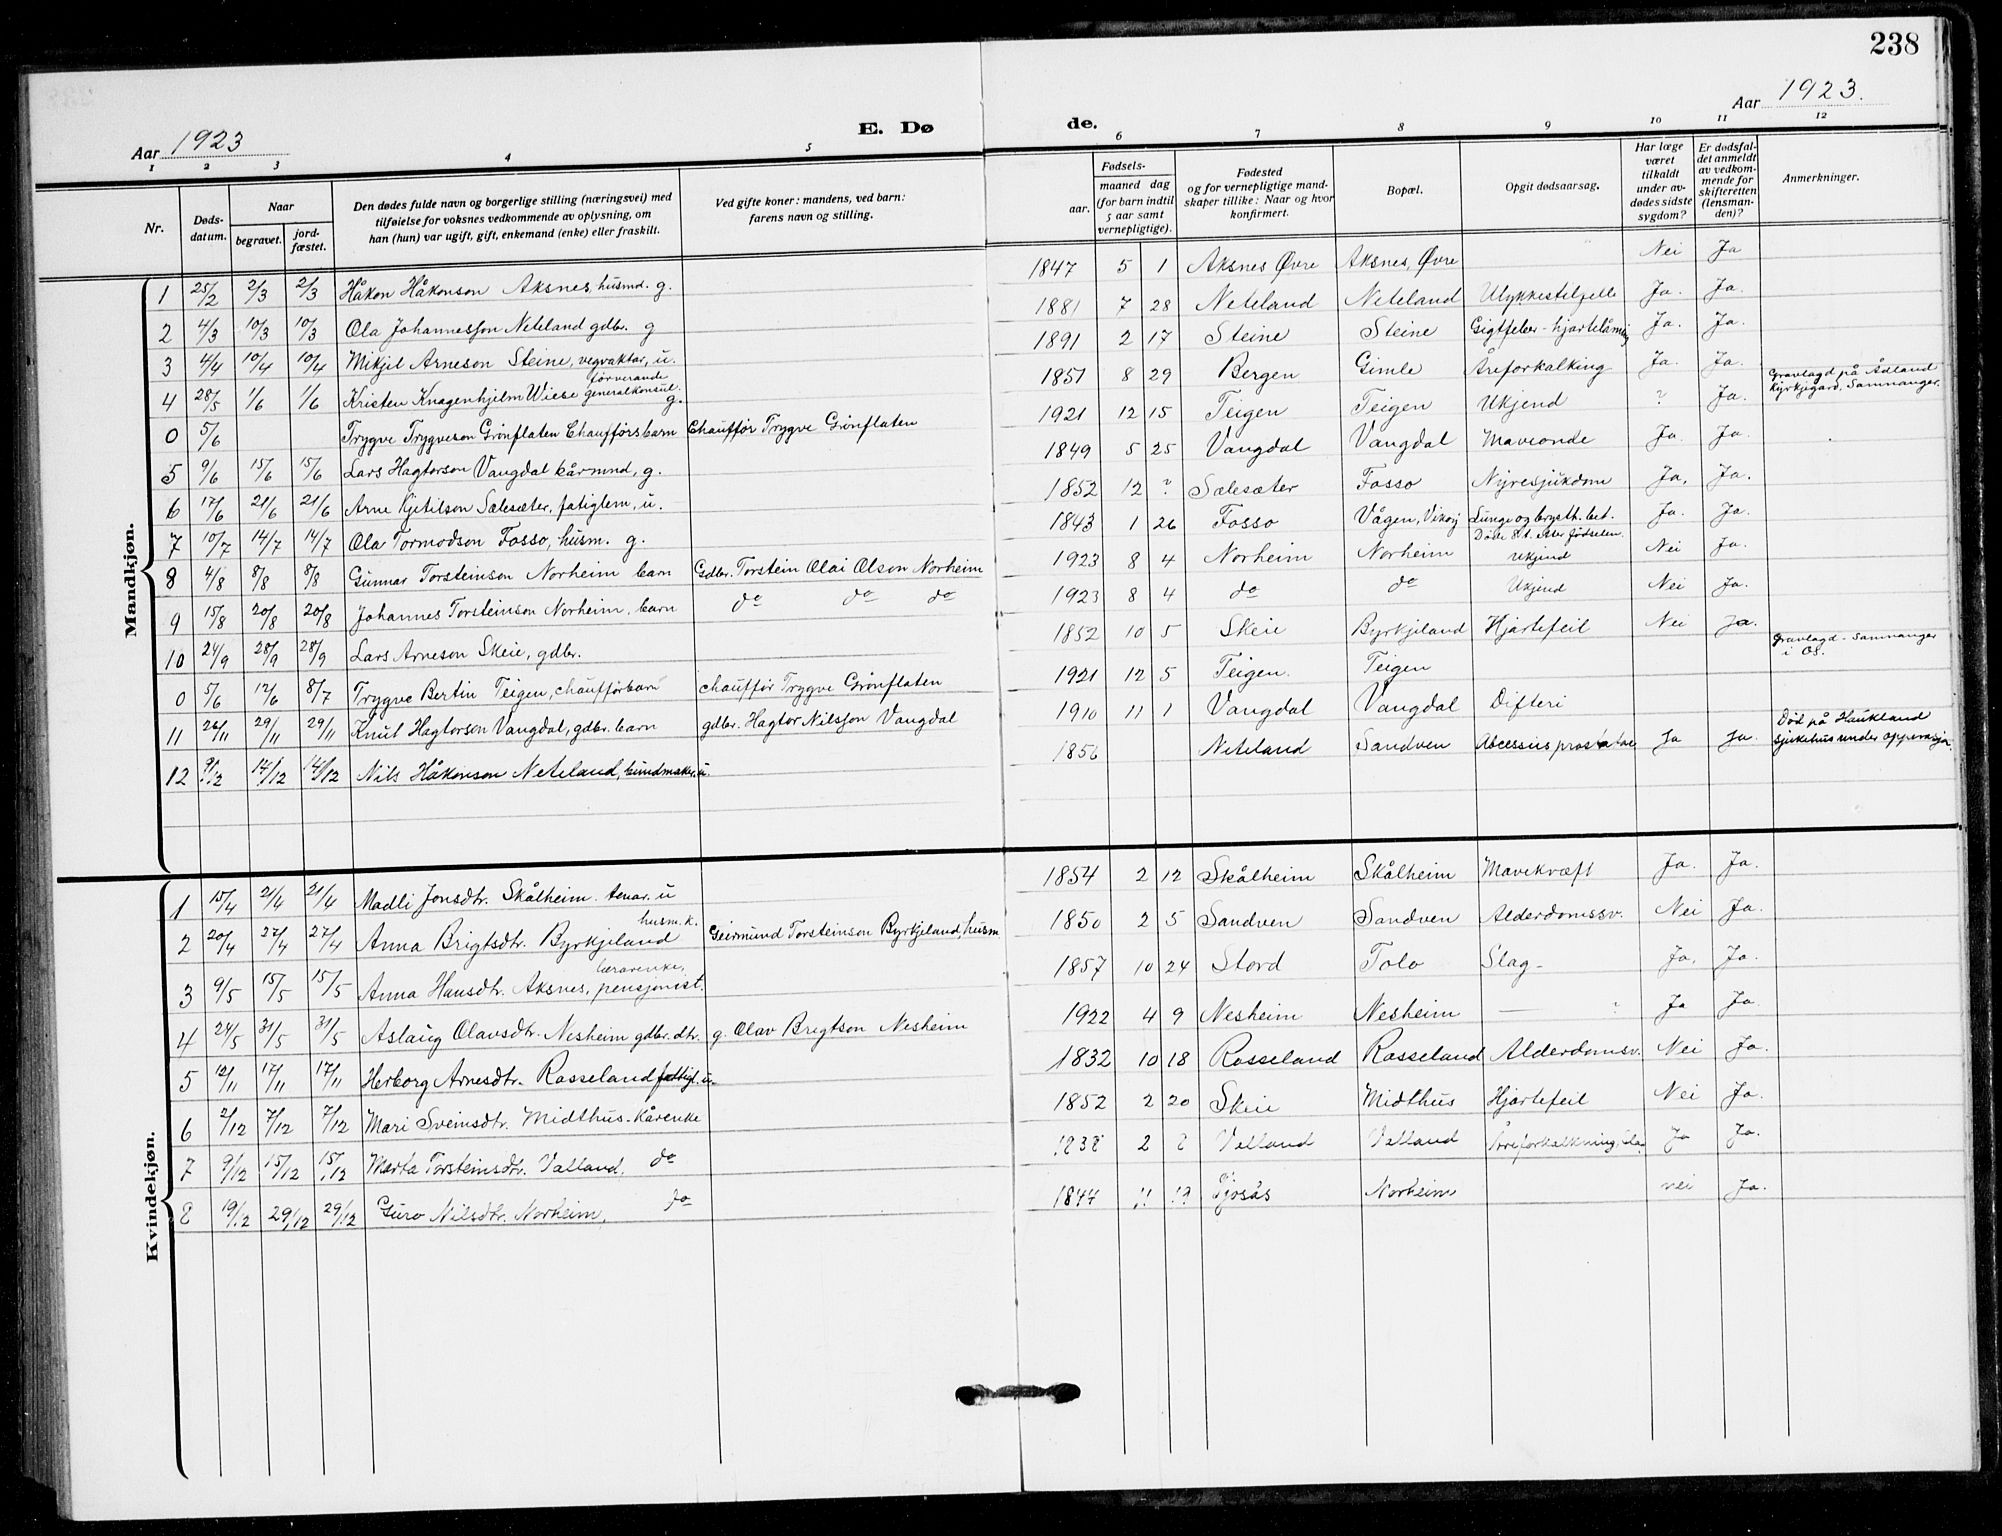 238
Aar 1923
E. Dø
de.
Aar 1923.
1 2 3 4 5 6 7 8 9 10 11 12
Nr.
Døds-datum.
Naar
begravet.
jord-fæstet.
Den dødes fulde navn og borgerlige stilling (næringsvei) med
tilføielse for voksnes vedkommende av oplysning, om
han (hun) var ugift, gift, enkemand (enke) eller fraskilt.
Ved gifte koner: mandens, ved barn:
farens navn og stilling.
Fødsels-
aar.
maaned dag
(for barn indtil
5 aar samt
vernepligtige).
Fødested
og for vernepligtige mand-
skaper tillike: Naar og hvor
konfirmert.
Bopæl.
Opgit dødsaarsag.
Har læge
været
tilkaldt
under av-
dødes sidste
sygdom?
Er dødsfal-
det anmeldt
av vedkom-
mende for
skifteretten
(lensman-
den)?
Anmerkninger.
Mandkjøn.
1 25/2 2/3 2/3 Håkon Håkonson Aksnes, husmd. g. 1847 5 1 Aksnes Øvre Aksnes, Øvre Nei Ja
2 4/3 10/3 10/3 Ola Johannesson Neteland gdbr. g 1881 7 28 Neteland Neteland Ulykkestilfelle Ja. Ja.
3 4/4 10/4 10/4 Mikjel Arneson Steine, vegvaktar, u. 1891 2 17 Steine Steine Gigtfeber - hjartelåming Ja. Ja.
4 28/5 1/6 1/6 Kristen Knagenhjelm Wiese förverande generalkonsul. g. 1851 8 29 Bergen Gimle Åreforkalking Ja. Ja. Gravlagd på Ådland Kyrkjegard, Samnanger.
0 5/6 Trygve Trygveson Grönflaten Chaufförsbarn Chaufför Trygve Grönflaten 1921 12 15 Teigen Teigen Ukjend ? Ja.
5 9/6 15/6 15/6 Lars Hagtorson Vangdal kårmnd, g. 1849 5 25 Vangdal Vangdal Maveonde Ja. Ja.
6 17/6 21/6 21/6 Arne Kjetilson Sælesæter, fatiglem, u. 1852 12 ? Sælesæter Fosso Nyresjukdom Ja, Ja.
7 10/7 14/7 14/7 Ola Tormodson Fosso, husm. g. 1843 1 26 Fosso Vågen, Vikøy Lunge og brysth. bet. Ja. Ja.
8 4/8 8/8 8/8 Gunnar Torsteinson Norheim barn Gdbr. Torstein Olai Olson Norheim 1923 8 4 Norheim Norheim Døde 8 t. etter fødselen. Ukjend Nei Ja.
9 15/8 20/8 20/8 Johannes Torsteinson Norheim, barn do do do 1923 8 4 do do Ukjend Nei Ja.
10 24/9 28/9 28/9 Lars Arneson Skeie, gdbr. 1852 10 5 Skeie Byrkjeland Hjartefeil Nei Ja.
0 5/6 12/6 8/7 Trygve Bertin Teigen, chaufförbarn chaufför Trygve Grönflaten 1921 12 5 Teigen. Teigen Gravlagd - Samnanger i Os.
11 26/11 29/11 29/11 Knut Hagtorson Vangdal, gdbr. barn gdbr. Hagtor Nilsson Vangdal 1910 11 1 Vangdal Vangdal Difteri
12 9/12 14/12 14/12 Nils Håkonson Neteland, bundmaker u 1856 Neteland Sandven Abcessus prostatae Ja Ja. Död på Haukland sjukehus under opperasjon
Kvindekjøn.
1 15/4 21/4 21/4 Madli Jonsdtr. Skålheim. tenar. u 1854 2 12 Skålheim Skålheim Mavekræft Ja. Ja.
2 20/4 27/4 27/4 Anna Brigtsdtr. Byrkjeland husm. k. Geirmund Torsteinson Byrkjeland, husm. 1850 2 5 Sandven Sandven Alderdomssv. Nei Ja.
3 9/5 15/5 15/5 Anna Hansdtr. Aksnes, lærarenke, pensjonist. 1857 10 24 Stord Tolo Slag- Ja, Ja.
4 24/5 31/5 31/5 Aslaug Olavsdtr. Nesheim gdbr. dtr. g. Olav Brigtson Nesheim 1922 4 9 Nesheim Nesheim — ? Ja Ja.
5 12/11 17/11 17/11 Herborg Arnesdtr. Rosseland fattigl. u. 1832 10 18 Rosseland Rosseland Alderdomsv. Nei Ja.
6 2/12 7/12 7/12 Mari Sveinsdtr. Midthus. Kårenke 1852 2 20 Skeie Midthus Hjartefeil Nei Ja.
7 9/12 15/12 15/12 Marta Torsteinsdtr. Valland, do 1838 2 Valland Valland Åreforkalkning, Ja Ja.
8 19/12 29/12 29/12 Guro Nilsdtr. Norheim, do 1844 11 Tjosås Norheim nei Ja.